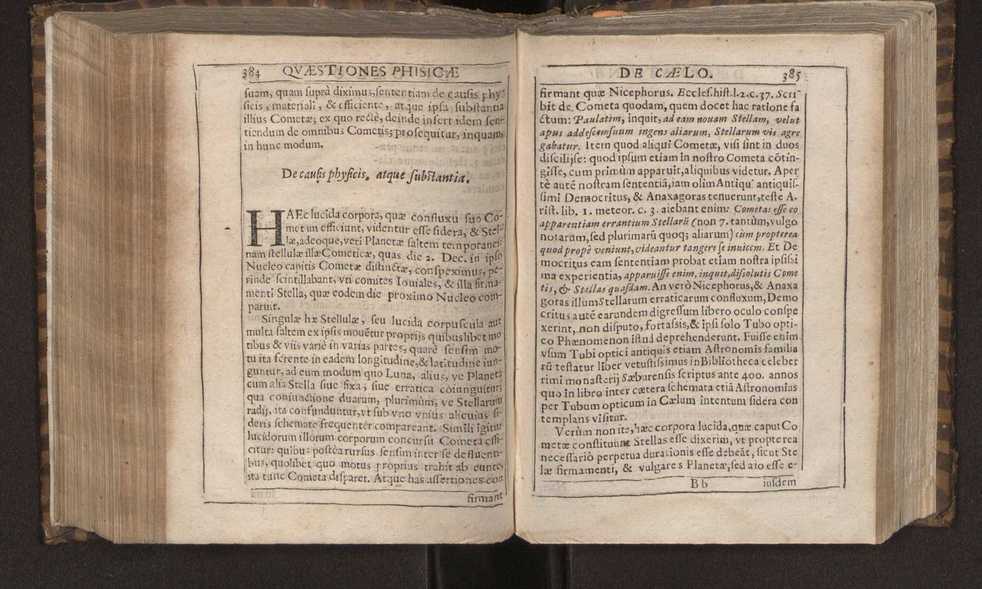 384 QVÆSTIONES PHISICÆ
suam, quam suprà diximus, sententiam de causis phy
sicis, materiali, & efficiente, atque ipsa substantia
illius Cometæ; ex quo rectè, deinde infert idem sen-
tiendum de omnibus Cometis; prosequitur, inquam
in hunc modum.
De causis physicis, atque substantia.
HAEc lucida corpora, quæ confluxu suo Co-
metum efficiunt, videntur esse sidera, & Stel-
læ, adeoque, veri Planetæ saltem temporanei
nam stellulæ illæ Cometicæ, quas die 2. Dec. in ipso
Nucleo capitis Cometæ distinctæ, conspeximus, pe-
rinde scintillabant, vti comites Iouiales, & illa firma-
menti Stella, quæ eodem die proximo Nucleo com-
paruit.
Singulæ hæ Stellulæ, seu lucida corpuscula aut
multa saltem ex ipsis mouētur proprijs quibuslibet mo
tibus & viis varie in varias partes, quare sensim mo-
tu ita ferente in eadem longitudine, & latitudine iun-
guntur, ad eum modum quo Luna, alius, ve Planeta
cum alia Stella siue fixa; siue erratica coniungitur;
qua coniunctione duarum, plurimùm, ve Stellarum
radij, ita confunduntur, vt sub vno vnius alicuius si-
deris schemate frequenter compareant. Simili igitur
lucidorum illorum corporum concursu Cometa effi-
citur: quibus postea rursus sensim inter se defluenti-
bus, quolibet quo motus proprius trahit ab eunte,
ita tunc Cometa disparet. Atque has assertiones con
firmant
DE CÆLO. 385
firmant quæ Nicephorus. Eccles. hist. l. 2. c. 37. Scri-
bit de Cometa quodam, quem docet hac ratione fa
ctum: Paulatim, inquit, ad eam nouam Stellam, velut
apus addescensuum ingens aliarum, Stellarum vis agre
gabatur. Item quod aliqui Cometæ, visi sint in duos
discilijse: quod ipsum etiam in nostro Cometa cōtin-
gisse, cum primùm apparuit, aliquibus videtur. Aper
tè autē nostram sententiā, iam olim Antiqui antiquis-
simi Democritus, & Anaxagoras tenuerunt, teste A-
rist. lib. 1. meteor. c. 3. aiebant enim: Cometas esse co
apparentiam errantium Stellarū (non 7. tantùm, vulgo
notarum, sed plurimarū quoq; aliarum) cùm propterea
quod propè veniunt, videantur tangere se inuicem. Et De
mocritus eam sententiam probat etiam nostra ipsissi
ma experientia, apparuisse enim, inquit, dissolutis Come
tis, & Stellas quasdam. An verò Nicephorus, & Anaxa
goras illum Stellarum erraticarum confluxum, Demo
critus autē earundem digressum libero oculo conspe
xerint, non disputo, fortassis, & ipsi solo Tubo opti-
co Phænomenon istud deprehenderunt. Fuisse enim
vsum Tubi optici antiquis etiam Astronomis familia
rū testatur liber vetustissimus in Bibliotheca celeber
rimi monasterij Sæburensis scriptus ante 400. annos
quo in libro inter cætera schemata etiā Astronomias
per Tubum opticum in Cælum intentum sidera con
templans visitur.
Verùm non ite, hæc corpora lucida, quæ caput Co
metæ constituunt Stellas esse dixerim, vt propterea
necessariò perpetua durationis esse debeāt, sicut Ste
læ firmamenti, & vulgares Planetæ, sed aio esse e-
B b iusdem